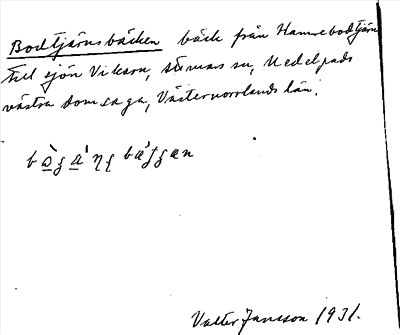 Bodtjärnsbäcken bäck från Hamrebodtjärn
till sjön Viksarn, Stömars sn, Medelpads
västra domsaga, Västernorrlands län.
Valter Jansson 1931.